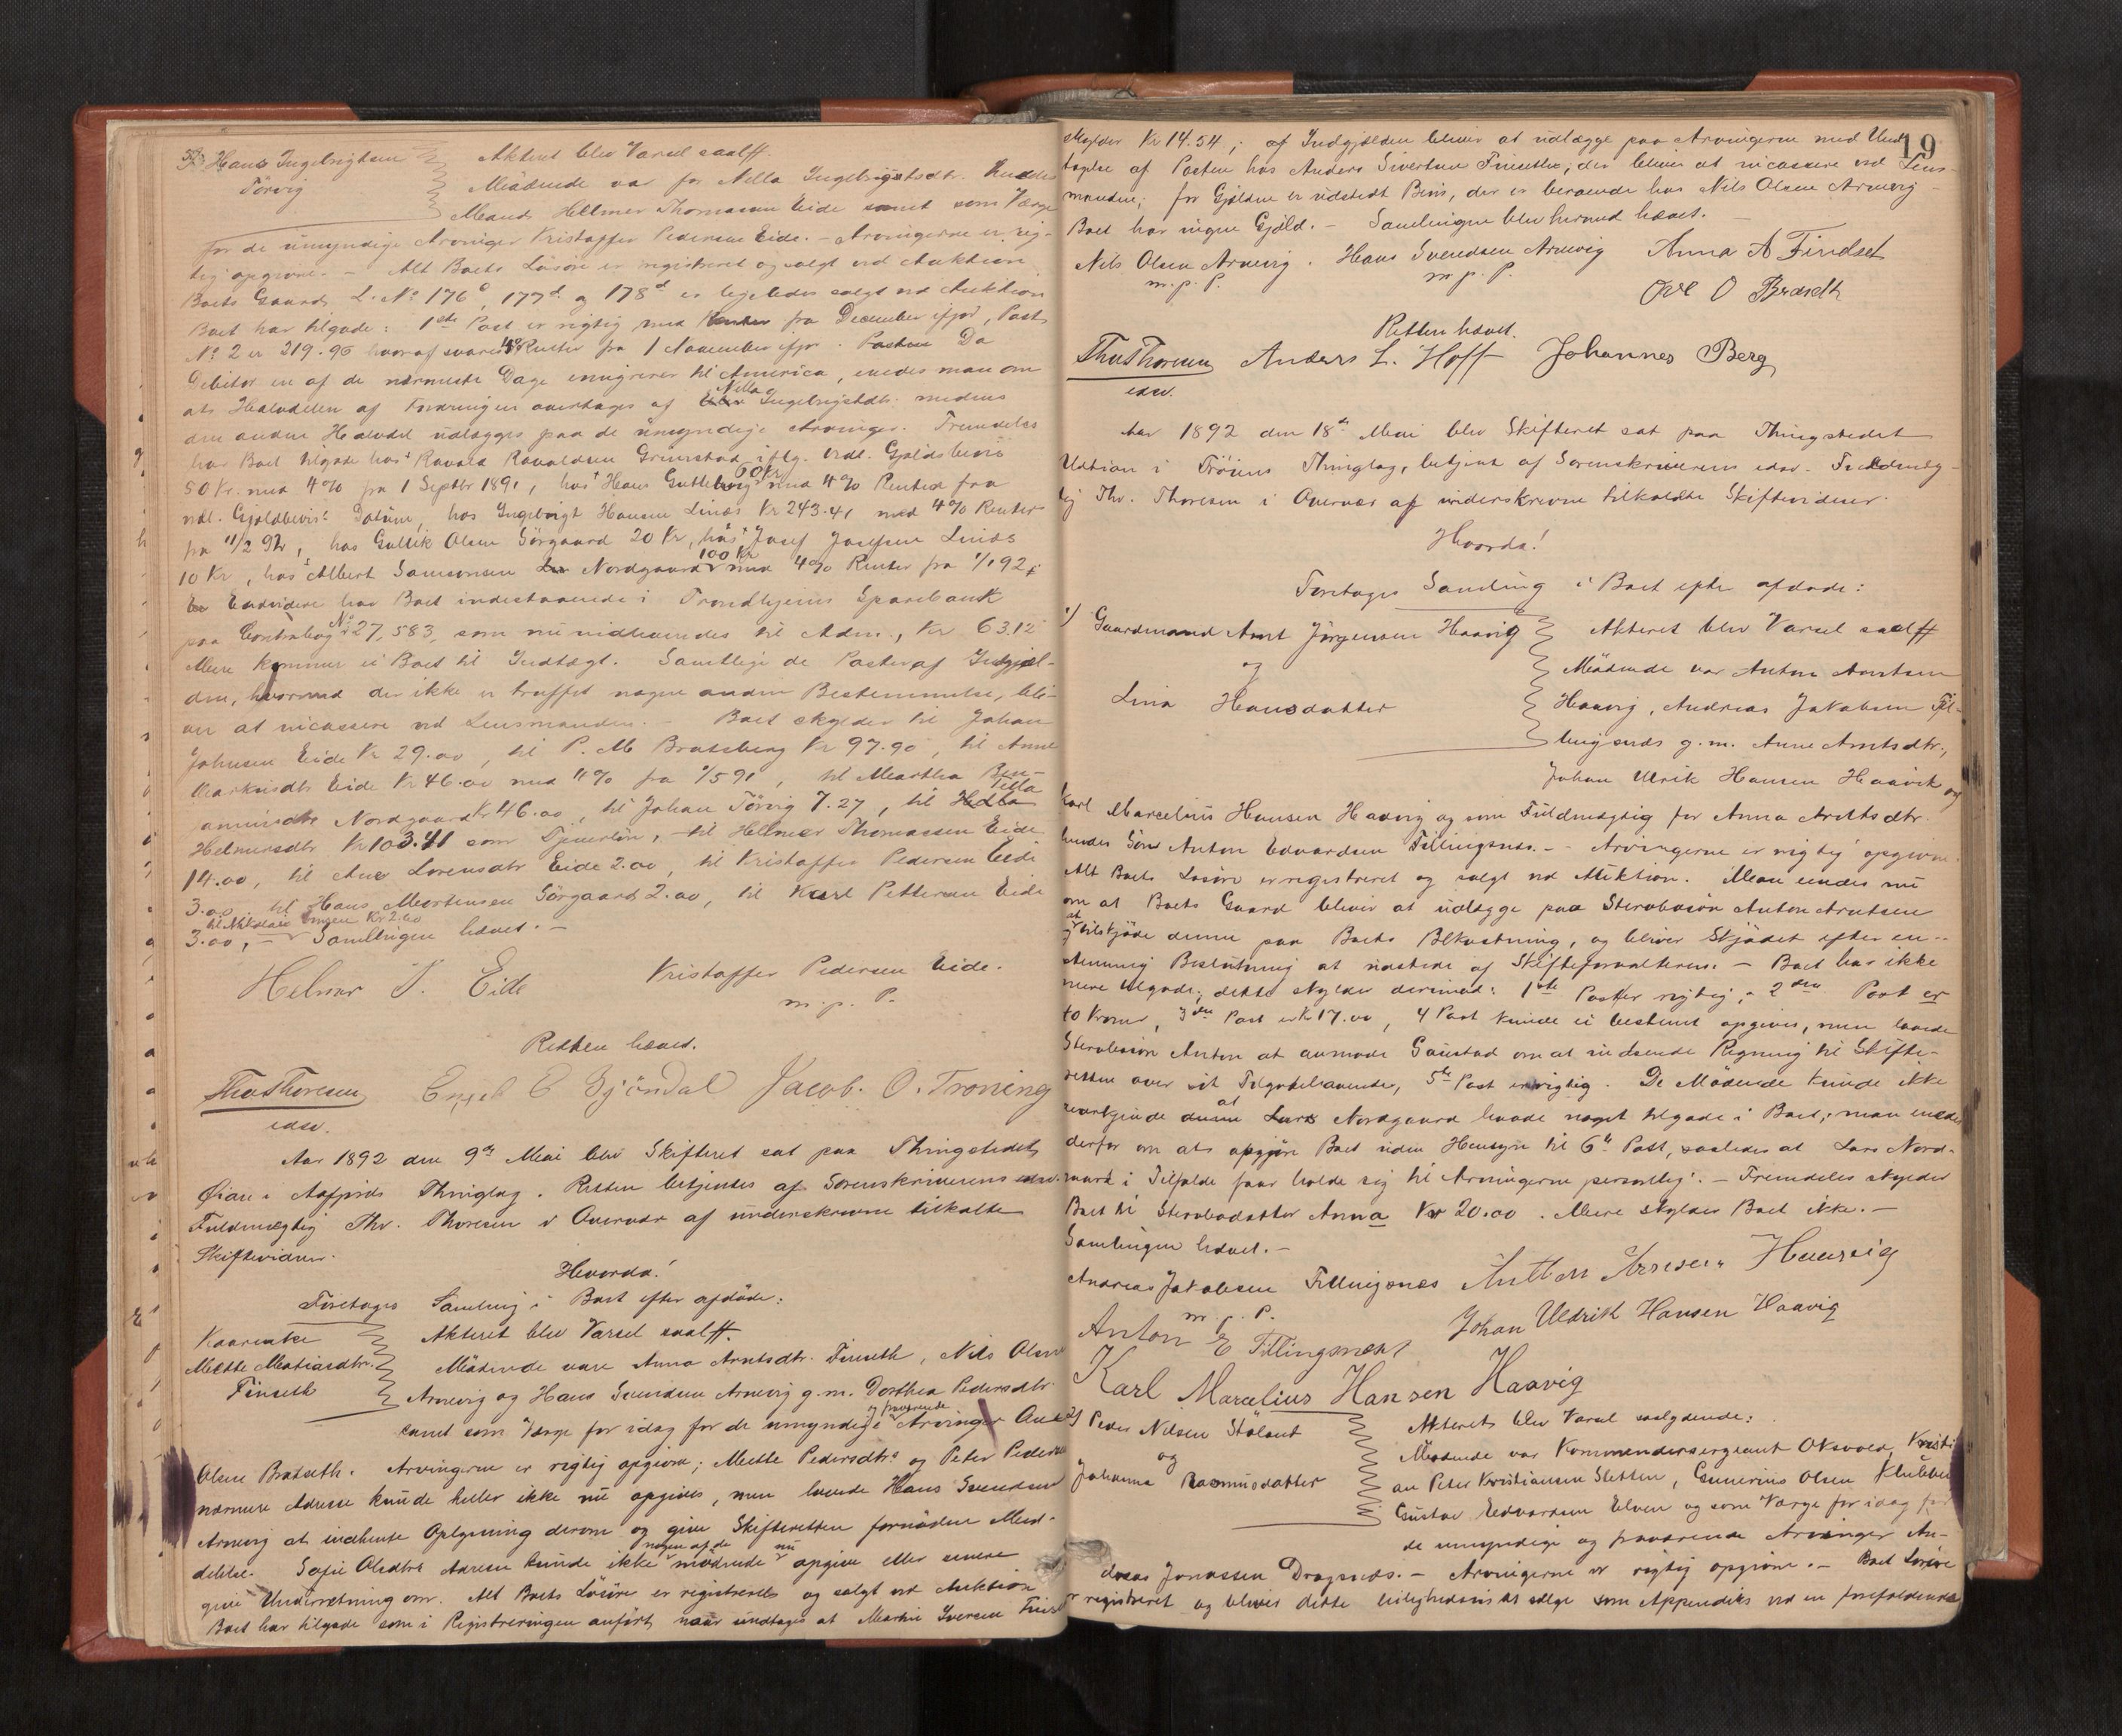 Hans Ingebrigtsen Akteret blev Varsel saalff.
Törvig Mödende var for Nella Ingebrigtsdtr. hendes
Mand Helmer Thomassen Eide samt som Værge
for de umyndige Arvinger Kristoffer Pedersen Eide. – Arvingerne er rig-
tig opgivne. – Alt Boets Lösöre er registreret og solgt ved Auktion
Boets Gaard, L. No 176c, 177d og 178d er ligeledes solgt ved Auktion
Boet har tilgode: 1ste Post er rigtig med Renter fra December ifjor, Post
No 2 er 219.96 hvoraf svares 4% Renter fra 1 November ifjor. Da
Debitor en af de nærmeste Dage emigrerer til America, enedes man om
at Halvdelen af Fordringen overtages af Nella Ingebrigtsdtr. medens
den anden Halvdel udlægges paa de umyndige Arvinger. Fremdeles
har Boet tilgode hos Ravald Ravaldsen Grimstad iflg. vedl. Gjeldsbevis
50 Kr. med 4% fra 1 Septbr 1891, hos Hans Guttelvig 60 Kr med 4% Renter fra
vedl. Gjeldbevis's Datum, hos Ingebrigt Hansen Linds Kr 243.41 med 4% Renter
fra 11/2 92, hos Gullik Olsen Sörgaard 20 Kr, hos Josef Josefsen Linds
10 Kr, hos Albert Samsonsen Nordgaard 100 Kr med 4% Renter fra 1/1 92;
Endvidere har Boet indestaaende i Trondhjems Sparebank
paa Contrabog No 27,583, som nu vidhæmdes til Adm., Kr 63.12
Mere kommer ei Boet til Indtægt. Samtlige de Poster af Indgjæl-
den, hvorved der ikke er truffet nogen anden Bestemmelse, bli-
ver at incassere ved Lensmanden. – Boet skylder til Johan
Johnsen Eide Kr 29.00, til P. M Bratsberg Kr 97.90, til Anne
Markusdtr Eide Kr 46.00 med 4% fra 1/5 91, til Martha Ben-
jaminsdtr Nordgaard Kr 46.00, til Johan Törvig 7.27, til Nella
Helmersdtr Kr 103.41 som Tjenerlön, til Helmer Thomassen Eide
14.00, til Ane Lorensdtr Eide 2.00, til Kristoffer Pedersen Eide
3.00, til Hans Mortensen Sörgaard 2.00, til Karl Pettersen Eide
3.00, – til Nikolai Kr 2.00 Samlingen hævet. –
Helmer T. Eide Kristoffer Pedersen Eide.
m. p. P.
Retten hævet.
Thv Thoresen Engel E Gjöndal Jacob. O. Troning
edsv.
Aar 1892 den 9de Mai blev Skifteret sat paa Thingstedet
Öian i Aafjords Thinglag. Retten betjentes af Sorenskriverens edsv.
Fuldmægtig Thv. Thoresen i Overvær af underskrevne tilkaldte
Skiftevidner.
Hvorda!
Foretages Samling i Boet efter afdöde:
Kaarenke Akteret blev Varsel saalff.
Mette Matiasdtr. Mödende vare Anna Arntsdtr. Finseth, Nils Olsen
Finseth Arnevig og Hans Svendsen Arnevig g.m. Dorthea Pedersdtr.
samt som Værge for idag for de umyndige og fraværende Arvinger Ove
Olsen Bradseth. Arvingerne er rigtig opgivne; Mette Pedersdtrs og Peter Pedersens
nærmere Adresse kunde heller ikke nu opgives, men lovede Hans Svendsen
Arnevig at indhente Oplysning derom og give Skifteretten fornöden Med-
delelse. Sofie Olsdtrs Adresse kunde ikke nogen af de mödende nu opgive eller senere
give Underretning om. Alt Boets Lösöre er registreret og solgt ved Auktion
Boet har tilgode som i Registreringen anfört, naar undtages at Martin Iversen Finset
19
skylder Kr 14.54; af Indgjælden bliver at udlægge paa Arvingerne med Und-
tagelse af Posten hos Anders Sivertsen Finseth; der bliver at incassere ved Lens-
manden; for Gjælden er udstedt Bevis, der er beroende hos Nils Olsen Arnevig –
Boet har ingen Gjæld. – Samlingen blev herved hævet. –
Nils Olsen Arnevig. Hans Svendsen Arnevig Anna A Findset
m. p. P. m. p. P. Ove O Bradseth
Retten hævet.
Thv Thoresen Anders L. Hoff Johannes Berg
edsv.
Aar 1892 den 18de Mai blev Skifteret sat paa Thingstedet
Udtian i Fröiens Thinglag, betjent af Sorenskriverens edsv. Fuldmæg-
tig Thv. Thoresen i Overvær af underskrevne tilkaldte Skiftevidner.
Hvorda!
Foretages Samling i Boet efter afdöde:
1) Gaardmand Arnt Jörgensen Haavig Akteret blev Varsel saalff
og Mödende var Anton Arntsen
Lina Hansdatter Haavig, Andreas Jakobsen Fil-
lingsnes g.m. Anne Arntsdtr.,
Johan Ulrik Hansen Haavik og
Karl Marcelius Hansen Haavig og som Fuldmægtig for Anna Arntsdtr.
hendes Sön Anton Edvardsen Fillingsnes. – Arvingerne er rigtig opgivne.
Alt Boets Lösöre er registreret og solgt ved Auktion. Man enedes nu
om at Boets Gaard bliver at udlægge paa Stervbosön Anton Arntsen
og at tilskjöde denne paa Boets Bekostning, og bliver Skjödet efter en-
stemmig Beslutning at udstede af Skifteforvalteren. – Boet har ikke
mere tilgode; dette skylder derimod: 1ste Post er rigtig, – 2den Post er
40 Kroner, 3die Post er Kr 17.00, 4 Post kunde ei bestemt opgives, men lovede
Stervbosön Anton at anmode Gaustad om at indsende Regning til Skifte-
retten over sit Tilgodehavende, 5te Post er rigtig. De Mödende kunde ikke
vedkjende at Lars Nordgaard havde noget tilgode i Boet; man enedes
derfor om at opgjöre Boet uden Hensyn til 6te Post, saaledes at Lars Nord-
gaard i Tilfælde faar holde sig til Arvingerne personlig. – Fremdeles skylder
Boet til Stervbodatter Anna Kr 20.00. Mere skylder Boet ikke. –
Samlingen hævet. –
Andreas Jakobsen Fillingsnes Anton Arntsen Haavig
m. p. P. Johan Uldrik Hansen Haavig
Anton E Fillingsnes
Karl Marcelius Hansen Haavig
2) Peder Nilsen Stölant Akteret blev Varsel saalydende:
og Mödende var Kommandersergeant Oksvold, Kristi-
Johanna Rasmusdatter an Peter Kristiansen Sletten, Gunerius Olsen Klubben
Gustav Edvardsen Elven og som Værge for idag for
de umyndige og fraværende Arvinger An-
dreas Jonassen Dragsnes. – Arvingerne er rigtig opgivne. – Boets Lösöre
er registreret og bliver dette leilighedsvis at sælge som Appendiks ved en forefaldende